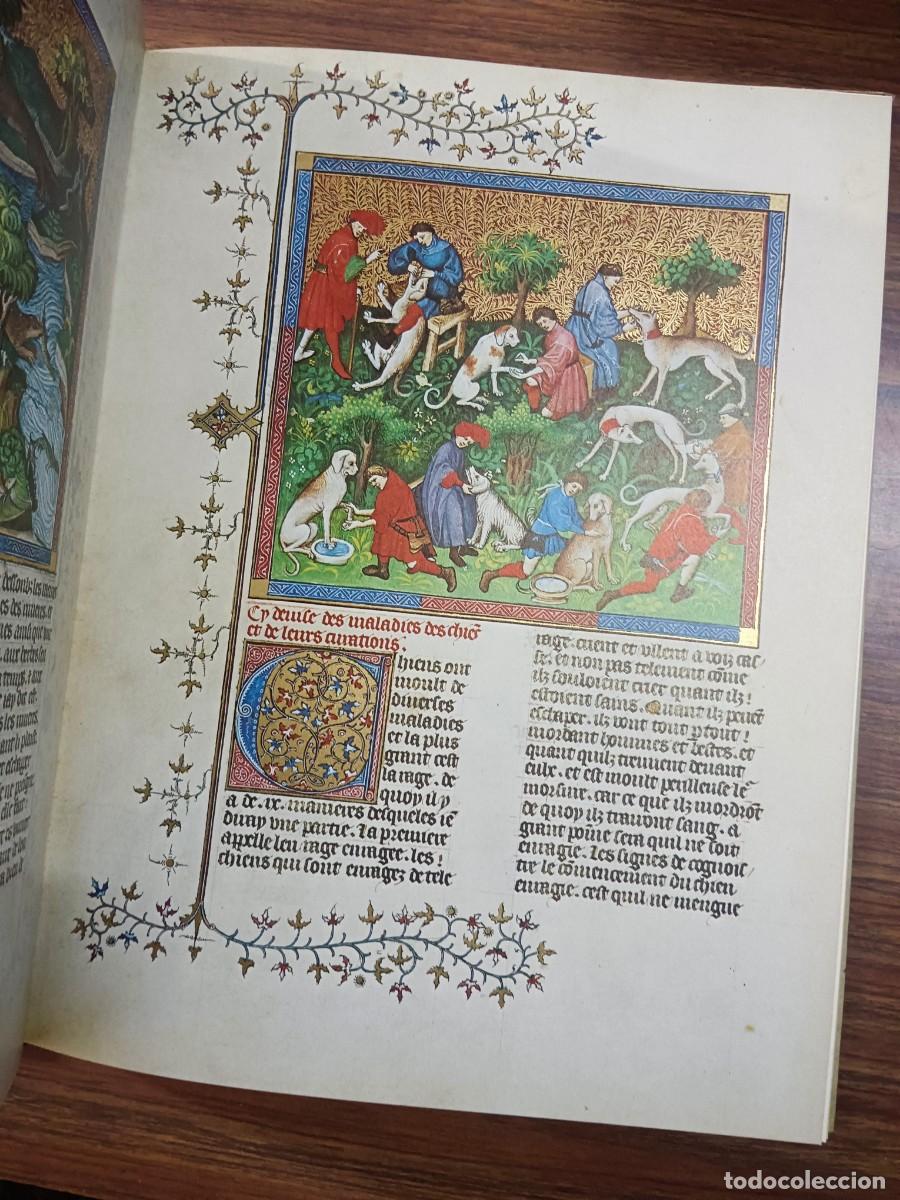 dessoubz les
aux
Cy devise des maladies des chiēs
et de leurs curations.
Chiens ont
moult de
diverses
maladies
et la plus
grant cest
la rage. de
quoy il y
a de .ix. manieres desqueles ie
diray une partie. la premiere
appelle len rage enragee. les
chiens qui sont enragez de tele
rage. crient et ullent a voiz cas
se. et non pas telement cōme
ilz souloient crier quant ilz
estoient sains. Quant ilz peuēt
eschaper. ilz vont tout ptout
mordant hommes et bestes. et
quant quilz treuvent devant
eulx. et est moult perilleuse le
morsure. car ce que ilz mordrōt
de quoy ilz trairont sang. a
grant poine sera quil ne soit
enragie. Les signes de cognois
tre le comencement du chien
enragie. cest quil ne mengue
todocoleccion